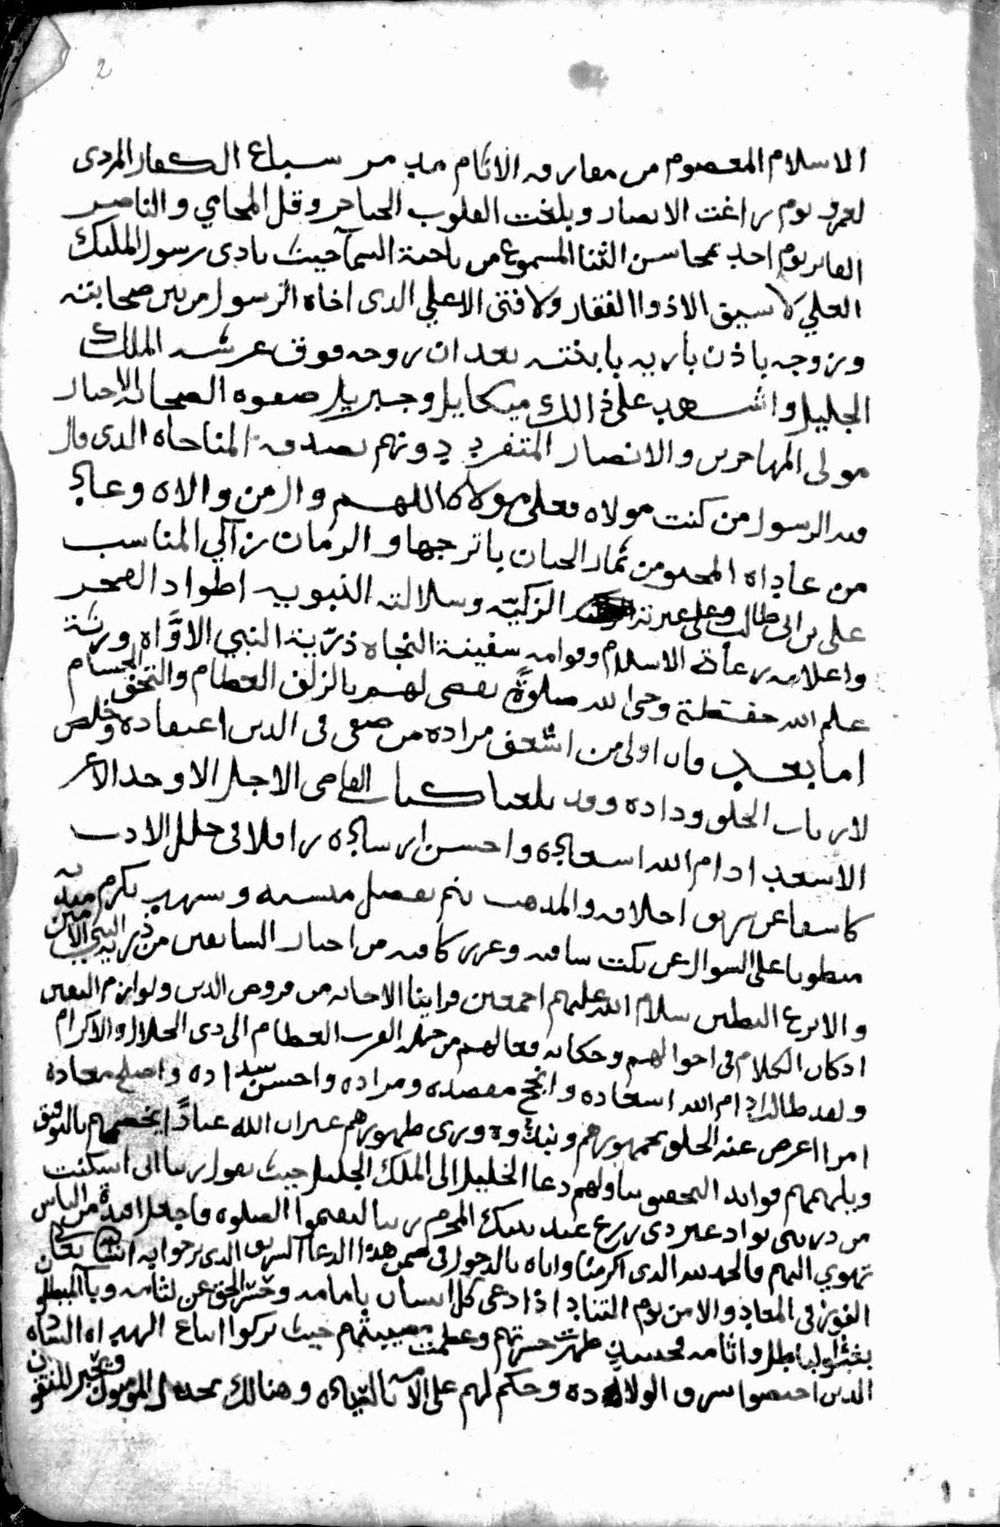 2
الاسلام المعصوم من مفارقه الاثام مبد مر سباع الكفار المردى
لعمرو يوم زاغت الابصار وبلغت القلوب الحناجر وقل المحامي والناصر
الفايز يوم احد بمحاسن الثنا المسموع من ناحية السمآ حيث نادى رسول المليك
العلي لا سيف الا ذو الفقار ولا فتى الا علي الذى اخاه الرسول من بين صحابته
وزوجه باذن باريه بابنته بعد ان زوجه فوق عرشه الملك
الجليل واشهد على ذالك ميكايل وجبريل صفوه الصحابه الاخيار
مولى المهاجرين والانصار المتفرد دونهم بصدقة المناجاه الذى قال
فيه الرسول من كنت مولاه فعلي مولاه اللهم وال من والاه وعاد
من عاداه المحبو من ثمار الجنان باترجها والرمان زاكي المناسب
علي بن ابي طالب وعلى عترته الزكيه وسلالته النبويه اطواد الفخر
واعلامه رعاة الاسلام وقوامه سفينة النجاه ذرية النبي الاواه ورثة
علم الله حفظته وحي الله صلوة تقضى لهم بالزلف العظام والتحف الجسام
اما بعد فان اولى من اتحف مراده من صفى فى الدين اعتقاده وخلص
لارباب الحق وداده وقد بلغنا كتاب القاضى الاجل الاوحد الاعز
الاسعد ادام الله اسعاده واحسن ارشاده رافلا فى حلل الادب
كاشفا عن شريف اخلاقه والمذهب ينم بفضل منشيه ويشهد بكرم مبديه
منطويا على السوال عن نكت شافيه وغرر كافيه من اخبار السابقين من ذرية النبي الامين
والانزع البطين سلام الله عليهم اجمعين فراينا الاجابه من فروض الدين ولوازم اليقين
اذ كان الكلام فى احوالهم وحكايه فعالهم من جملة القرب العظام الى ذى الجلال والاكرام
ولقد طالت ادام الله اسعاده وانجح مقصده ومراده واحسن سداده واصلح معاده
امرا اعرض عنه الخلق بجمهورهم ونبذوه ورى ظهورهم غير ان الله عبادا يخصهم بالتوفيق
ويلهمهم فوايد التحقيق تناولهم دعا الخليل الى الملك الجليل حيث يقول ربنا انى اسكنت
من ذريتى بواد غير ذى زرع عند بيتك المحرم ربنا ليقيموا الصلوه فاجعل افئدة من الناس
تهوي اليهم فالحمد لله الذى اكرمنا واياه بالدخول فى ضمن هذا الدعا الشريف الذى نرجوا به ان شا الله تعالى
الفوز فى المعاد والامن يوم التناد اذا دعى كل انسان بامامه وحسر الحق عن لثامه وباالمبطلو
الذين اختصوا بشرف الولاده وحكم لهم على الامه بالقياده وهنالك